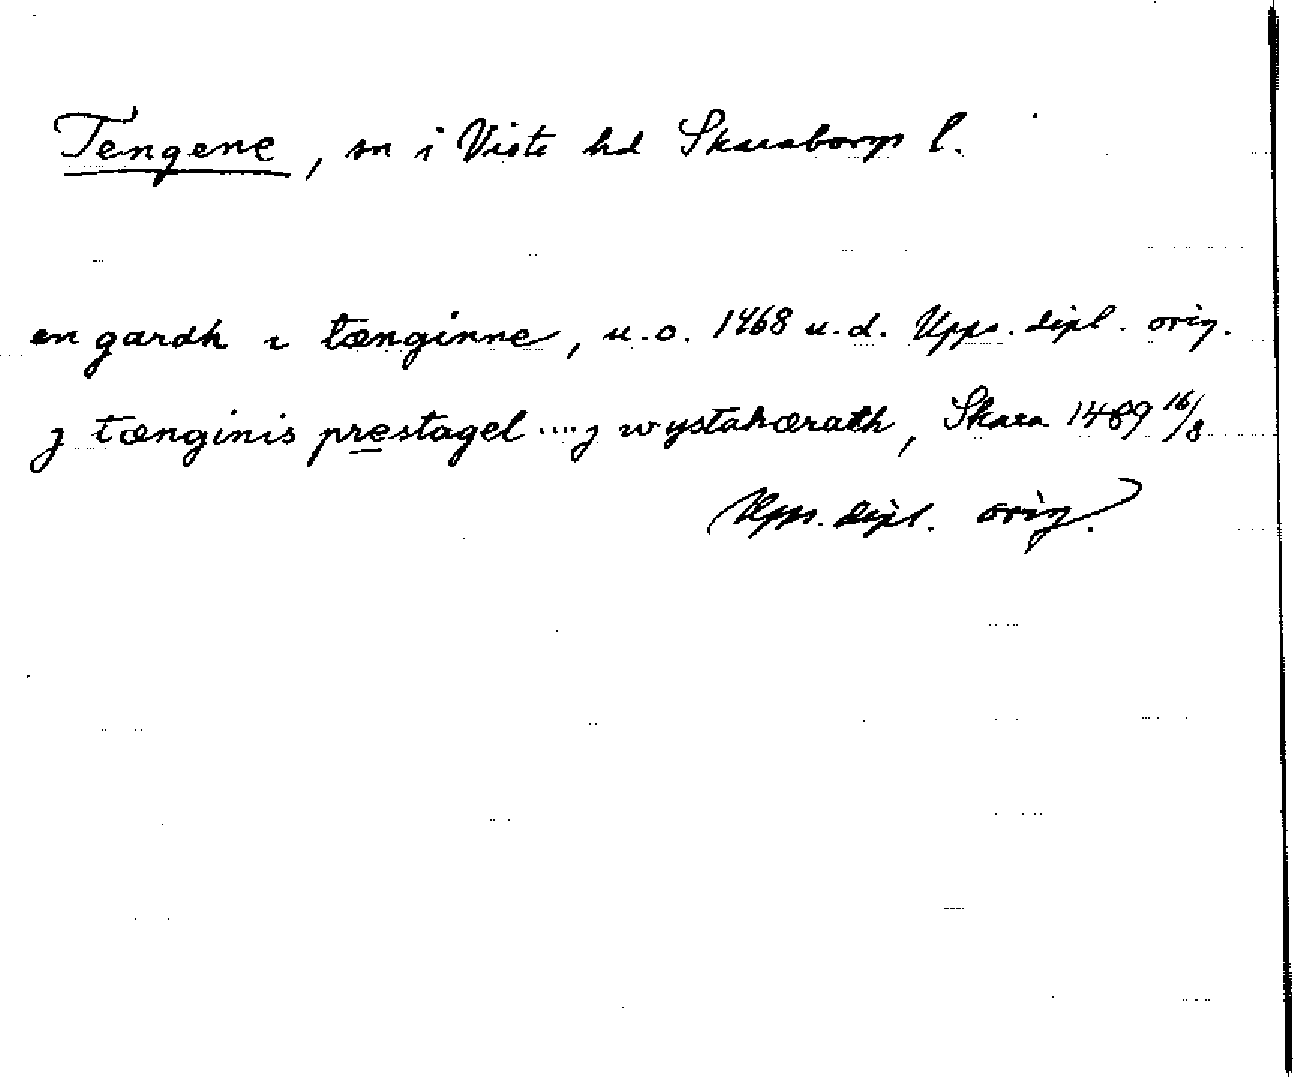 Tengene, sn i Viste hd Skaraborgs l.
en gardh i tænginne, u.o. 1468 u.d. Upps. dipl. orig.
j tænginis prestagel .... j wystahærath, Skara 1489 16/8
Upps. dipl. orig.